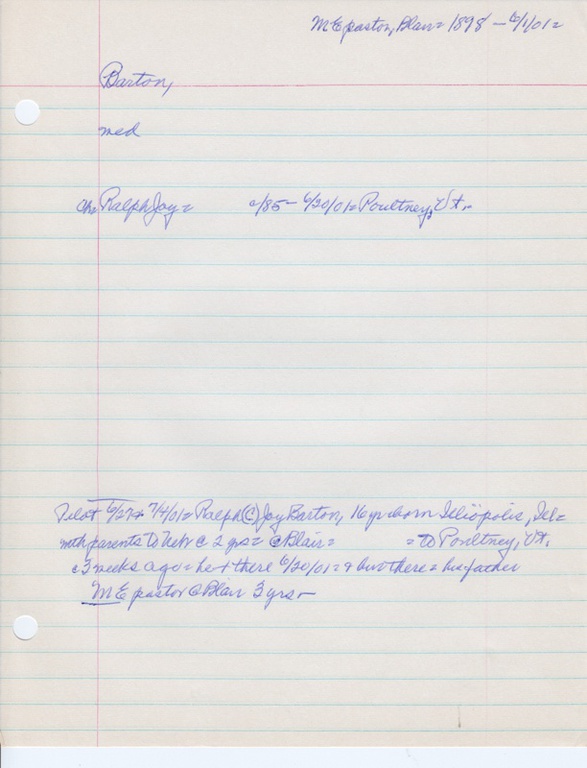 M E pastor, Blair = 1898 - 6/1/01 =
Barton,
med
Ch = Ralph Joy = c/85 - 6/20/01 = Poultney, Vt.
Pilot 6/27 + 7/4/01 = Ralph (C) Joy Barton, 16 yr = born Illiopolis, Ill =
with parents to Neb c 2 yrs = @ Blair = = to Poultney, Vt.
c 3 weeks ago = he + there 6/20/01 = + bur there = his father
M E pastor @ Blair 3 yrs -